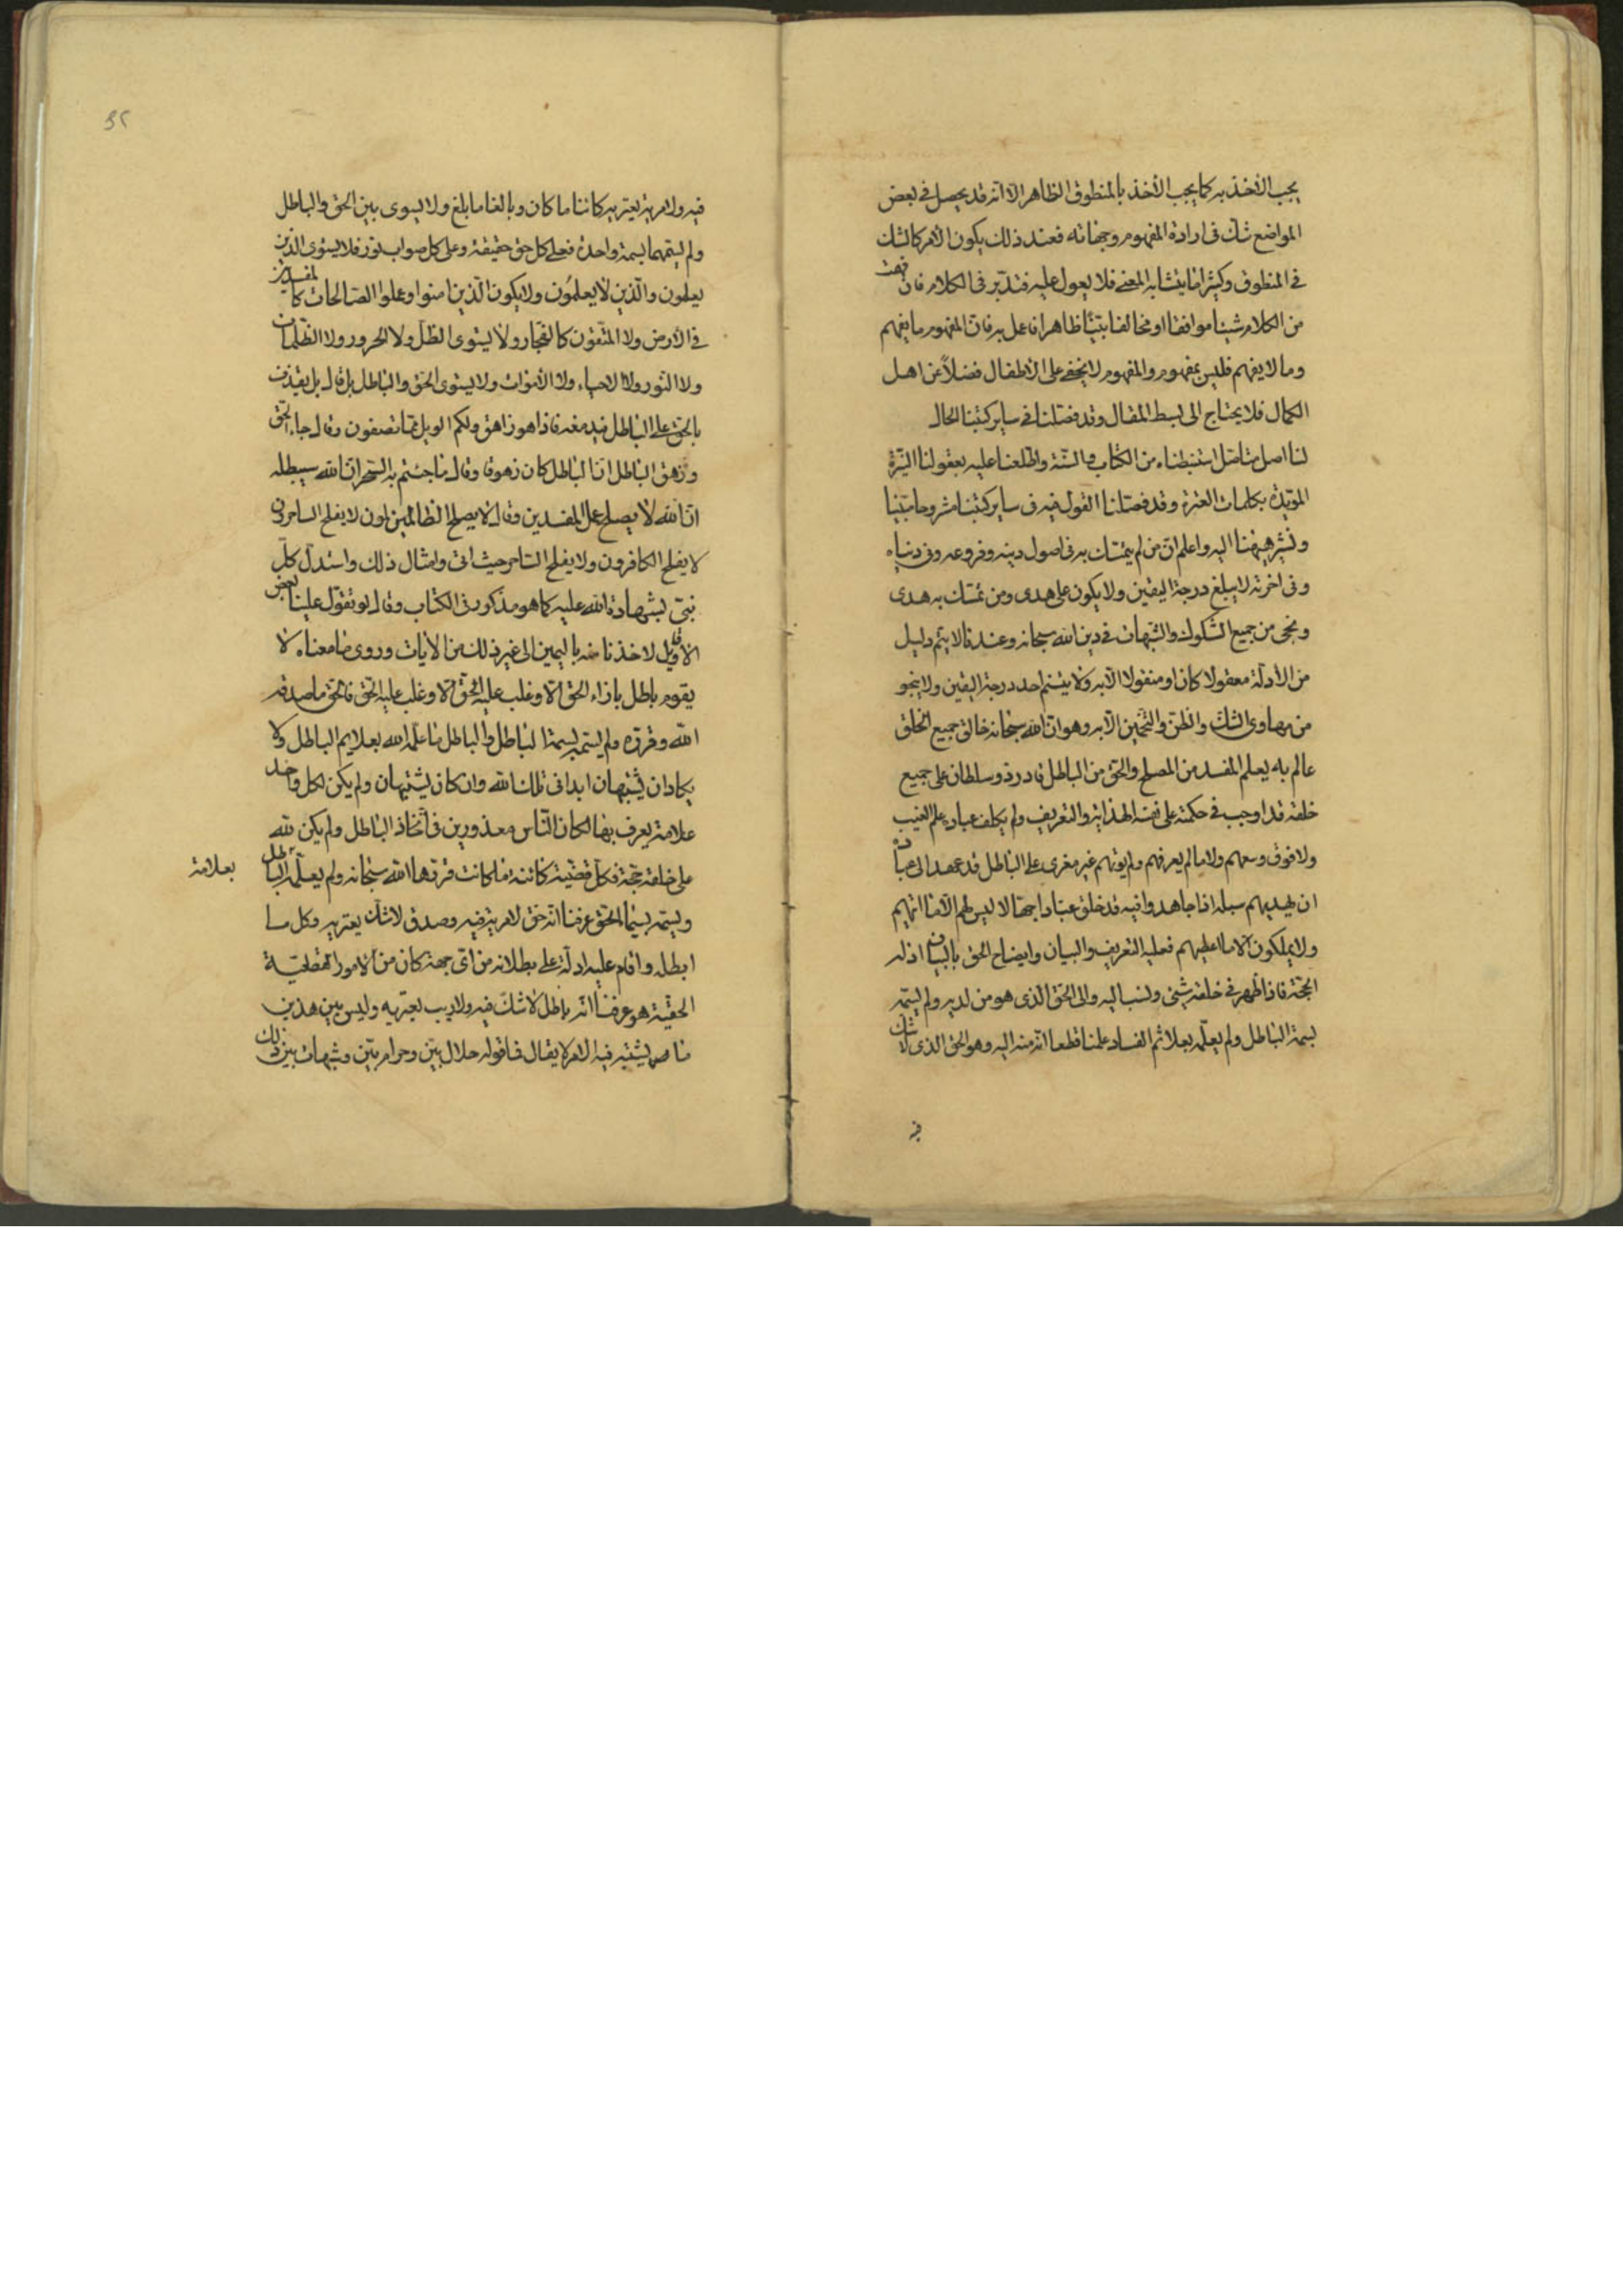 يجب الأخذ به كما يجب الأخذ بالمنطوق الظاهر الا انه قد يحصل في بعض
المواضع شك في ارادة المفهوم وجهاته فعند ذلك يكون الأمر كالشك
في المنطوق وكثيرا ما يتشابه المعنى فلا يعول عليه فتدبر في الكلام فان فهمت
من الكلام شيئا موافقا او مخالفا بيّنا ظاهرا فاعمل به فان المفهوم ما يفهم
وما لا يفهم فليس بمفهوم والمفهوم لا يخفى على الأطفال فضلاً عن اهل
الكمال فلا يحتاج الى بسط المقال وقد فصلنا في ساير كتبنا الحال
لنا اصل متاصل استنبطناه من الكتاب والسنة واطلعنا عليه بعقولنا النيّرة
المؤيدة بكلمات العترة وقد فصلنا القول فيه في ساير كتبنا مشروحا مبينا
ونشير هيهنا اليه واعلم ان من لم يتمسك به في اصول دينه وفروعه وفي دنياه
وفي اخرته لا يبلغ درجة اليقين ولا يكون على هدى ومن تمسك به هدى
ونجى من جميع الشكوك والشبهات في دين الله سبحانه وعندنا لا يتم دليل
من الأدلة معقولا كان او منقولا الا به ولا يتسنم احد درجة اليقين ولا ينجو
من مهاوي الشك والظن والتخمين الا به وهو ان الله سبحانه خالق جميع الخلق
عالم به يعلم المفسد من المصلح والحق من الباطل قادر ذو سلطان على جميع
خلقه قد اوجب في حكمته على نفسه الهداية والتعريف ولم يكلف عباده علم الغيب
ولا فوق وسعهم ولا ما لم يعرفهم ولم يؤتهم غير مغرى على الباطل قد عهد الى عباده
ان يهديهم سبله اذا جاهدوا فيه قد خلق عبادا جهالا ليس لهم الا ما اتيهم
ولا يملكون الا ما اعطيهم فعليه التعريف والبيان وايضاح الحق بالبيان اذ له
الحجة فاذا ظهر في خلقه شيئ ونسب اليه والى الحق الذي هو من لديه ولم يسمه
بسمة الباطل ولم يعلّمه بعلائم الفساد علمنا قطعا انه منه اليه وهو الحق الذي لا شك
فيه
فيه ولا مرية يعتريه كائنا ما كان وبالغا ما بلغ ولا يسوى بين الحق والباطل
ولم يسمهما بسمة واحدة فعلى كل حق حقيقة وعلى كل صواب نور فلا يستوي الذين
يعلمون والذين لا يعلمون ولا يكون الذين امنوا وعملوا الصالحات كالمفسدين
في الأرض ولا المتقون كالفجار ولا يستوي الظل ولا الحرور ولا الظلمات
ولا النور ولا الاحياء ولا الأموات ولا يستوي الحق والباطل بل قال بل يقذف
بالحق على الباطل فيدمغه فاذا هو زاهق ولكم الويل مما تصفون وقال جاء الحق
وزهق الباطل ان الباطل كان زهوقا وقال ما جئتم به السحر ان الله سيبطله
ان الله لا يصلح عمل المفسدين وقال لا يصلح الظالمون لا يفلح الساحرون
لا يفلح الكافرون ولا يفلح الساحر حيث اتى وامثال ذلك واستدل كل
نبي بشهادة الله عليه كما هو مذكور في الكتاب وقال لو تقول علينا بعض
الأقاويل لاخذنا منه باليمين الى غير ذلك من الايات وروى ما معناه لا
يقوم باطل بازاء الحق الا وغلب عليه الحق الا وغلب عليه الحق فالحق ما صدقه
الله وقرره ولم يسمه بسمة الباطل والباطل ما علّمه الله بعلايم الباطل ولا
يكادان يشتبهان ابدا في ملك الله وان كان يشتبهان ولم يكن لكل واحد
علامة يعرف بها لكان الناس معذورين في اتخاذ الباطل ولم يكن لله
على خلقه حجة فكل قضية كائنة ما كانت قررها الله سبحانه ولم يعلّمه الباطل
بعلامة
ويسمه بسيما الحق عرفنا انه حق لا مرية فيه وصدق لا شك يعتريه وكل ما
ابطله واقام عليه ادلة على بطلانه من اي جهة كان من الامور القطعية
الحقية هو عرفنا انه باطل لا شك فيه ولا ريب يعتريه وليس بين هذين
ما يشتبه فيه الامر لا يقال فما قوله حلال بيّن وحرام بيّن وشبهات بين ذلك